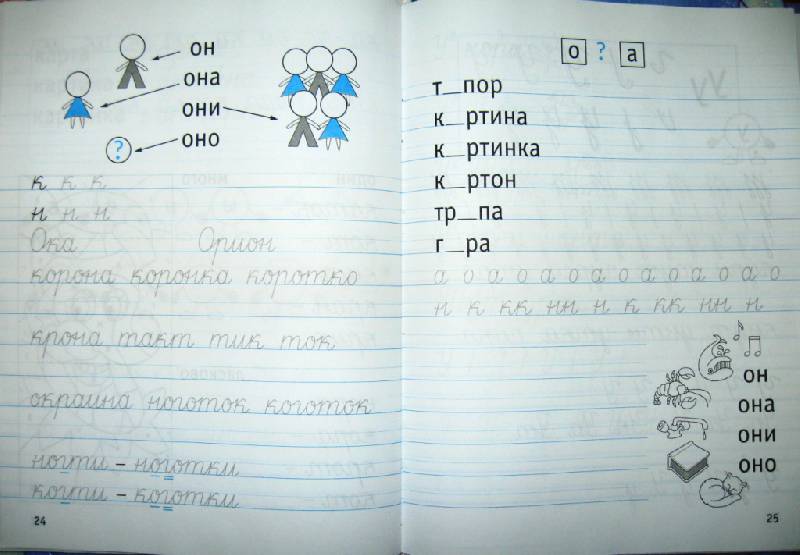 он
она
они
оно
?
к к к
н н н
Ока Орион
корона коронка коротко
крона такт тик ток
окраина ноготок коготок
ногти – ноготки
когти – коготки
24
о ? а
т_пор
к_ртина
к_ртинка
к_ртон
тр_па
г_ра
а о а о а о а о а о а о а о
н к кк нн н к кк нн н
он
она
они
оно
25